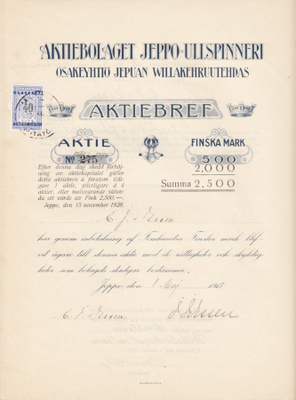 AKTIEBOLAGET JEPPO-ULLSPINNERI
OSAKEYHTIO JEPUAN WILLAKEHRUUTEHDAS
AKTIEBREF
AKTIE
FINSKA MARK
No 275
500
Efter denna dag skedd förhöj-
ning av aktiekapitalet gäller
detta aktiebrev å förutom tidi-
gare 1 aktie, ytterligare å 4
aktier, eller motsvarande sålun-
da ett värde av Fmk 2,500:—.
Jeppo, den 15 november 1928.
2,000
Summa 2,500
C. J. Jessen
har genom inbetalning af Femhundra Finska mark blif-
vit ägare till denna aktie med de rättigheter och skyldig-
heter som bolagets stadgar bestämma.
Jeppo, den 1 Maj
C. J. Jessen